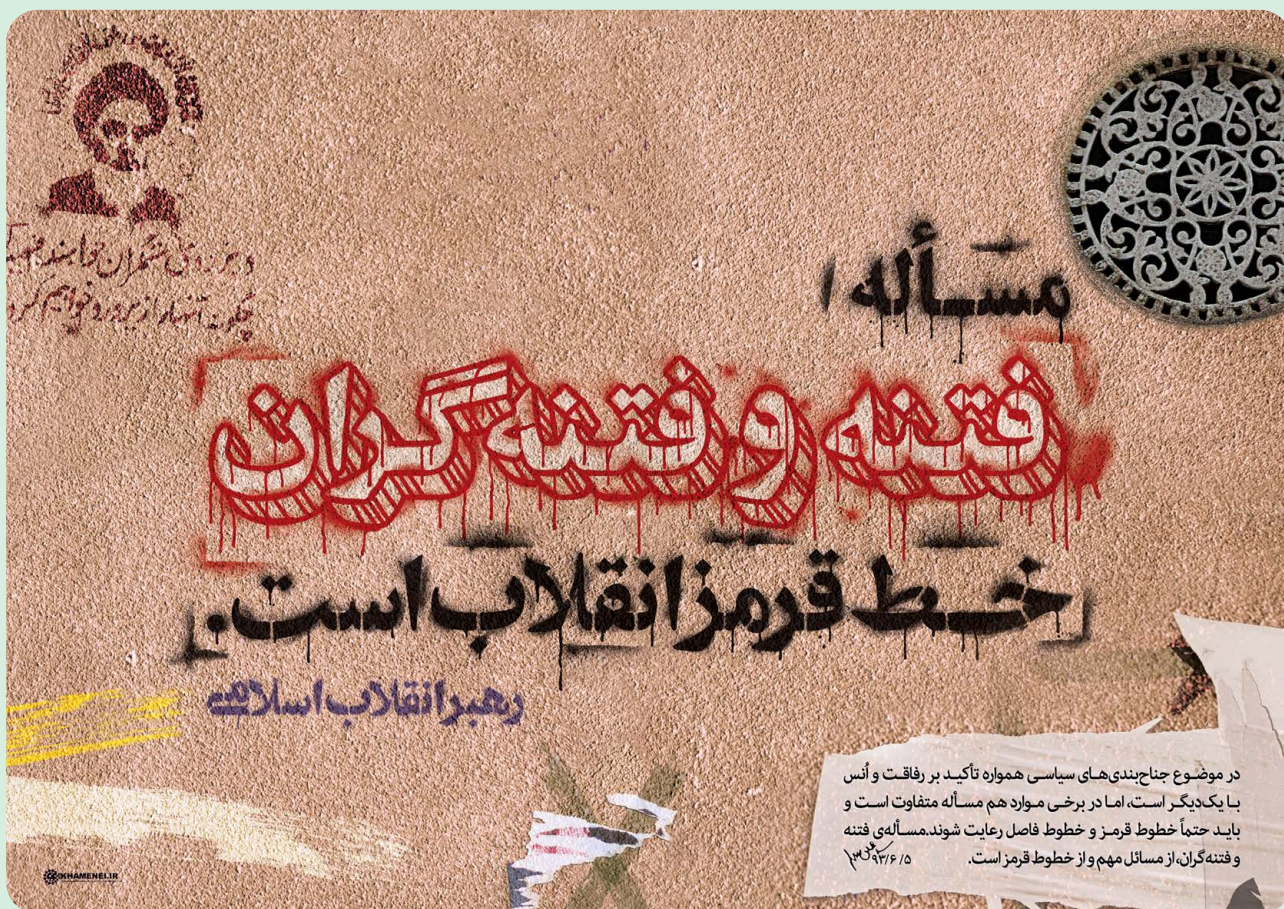 مسأله‌ی
فتنه و فتنه‌گران
خط قرمز انقلاب است.
رهبر انقلاب اسلامی
در موضوع جناح‌بندی‌های سیاسی همواره تأکید بر رفاقت و اُنس
با یک‌دیگر است، اما در برخی موارد هم مسأله متفاوت است و
باید حتماً خطوط قرمز و خطوط فاصل رعایت شوند. مسأله‌ی فتنه
و فتنه‌گران، از مسائل مهم و از خطوط قرمز است. ۹۳/۶/۵
KHAMENEI.IR